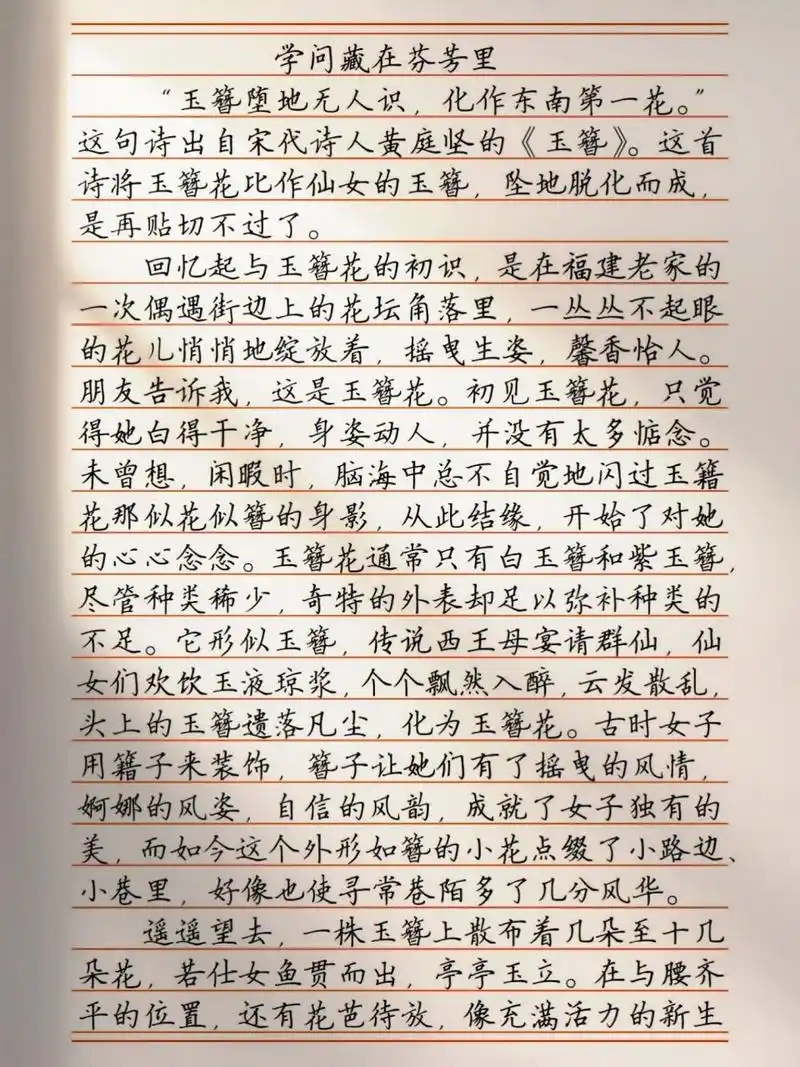 学问藏在芬芳里
“玉簪堕地无人识，化作东南第一花。”
这句诗出自宋代诗人黄庭坚的《玉簪》。这首
诗将玉簪花比作仙女的玉簪，坠地脱化而成，
是再贴切不过了。
回忆起与玉簪花的初识，是在福建老家的
一次偶遇街边上的花坛角落里，一丛丛不起眼
的花儿悄悄地绽放着，摇曳生姿，馨香怡人。
朋友告诉我，这是玉簪花。初见玉簪花，只觉
得她白得干净，身姿动人，并没有太多惦念。
未曾想，闲暇时，脑海中总不自觉地闪过玉籍
花那似花似簪的身影，从此结缘，开始了对她
的心心念念。玉簪花通常只有白玉簪和紫玉簪，
尽管种类稀少，奇特的外表却足以弥补种类的
不足。它形似玉簪，传说西王母宴请群仙，仙
女们欢饮玉液琼浆，个个飘然入醉，云发散乱，
头上的玉簪遗落凡尘，化为玉簪花。古时女子
用籍子来装饰，簪子让她们有了摇曳的风情，
婀娜的风姿，自信的风韵，成就了女子独有的
美，而如今这个外形如簪的小花点缀了小路边、
小巷里，好像也使寻常巷陌多了几分风华。
遥遥望去，一株玉簪上散布着几朵至十几
朵花，若仕女鱼贯而出，亭亭玉立。在与腰齐
平的位置，还有花芭待放，像充满活力的新生